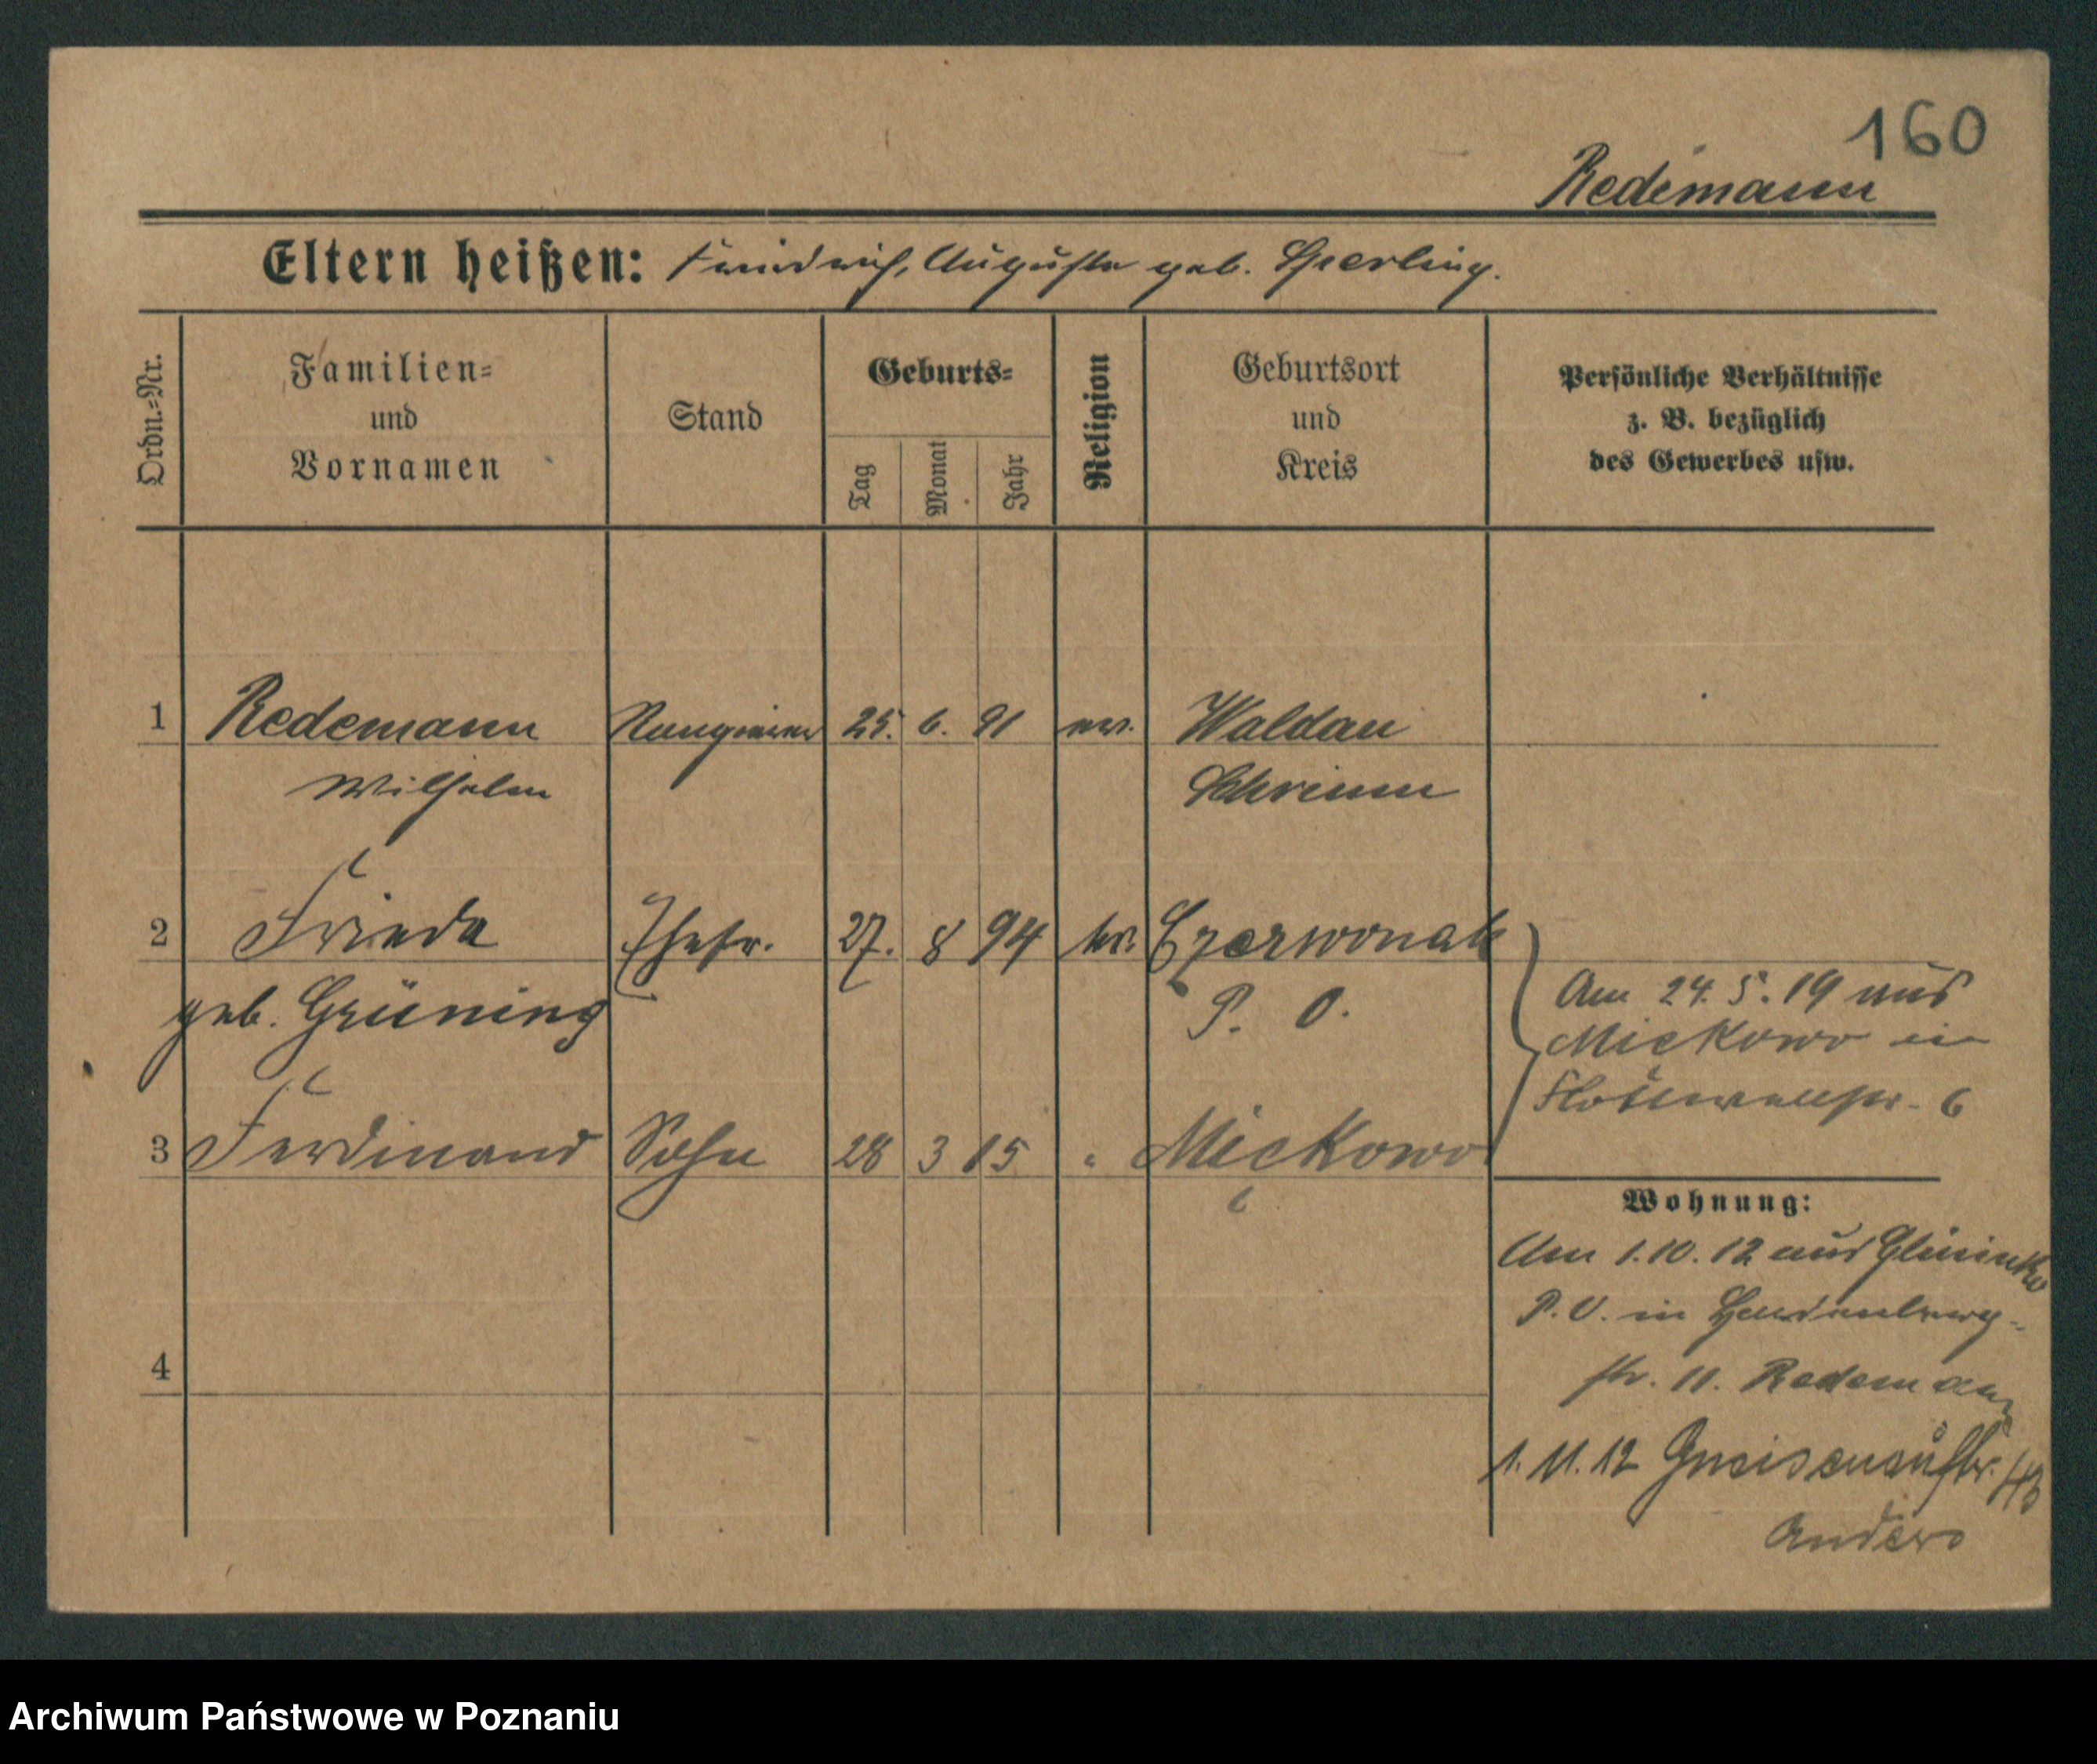 160
Redemann
Eltern heißen: Friedrich, Auguste geb. Sperling.
Ordn.=Nr.
Familien=
und
Vornamen
Stand
Geburts=
Tag
Monat
Jahr
Religion
Geburtsort
und
Kreis
Persönliche Verhältnisse
z. B. bezüglich
des Gewerbes usw.
1 Redemann Rangierer 25. 6. 91 ev. Waldau
Wilhelm Schrimm
2 Frieda Ehefr. 27. 8 94 ev. Czerwonak
geb. Grüning P. O.
Am 24. 5. 19 aus
Miekowo in
Flottwellstr. 6
3 Ferdinand Sohn 28 3 15 " Miekowo
Wohnung:
Am 1.10.12 aus Glinienko
P. O. in
str. 11. Redemann
4
1. 11. 12 Gneisenaustr.
Anders
Archiwum Państwowe w Poznaniu